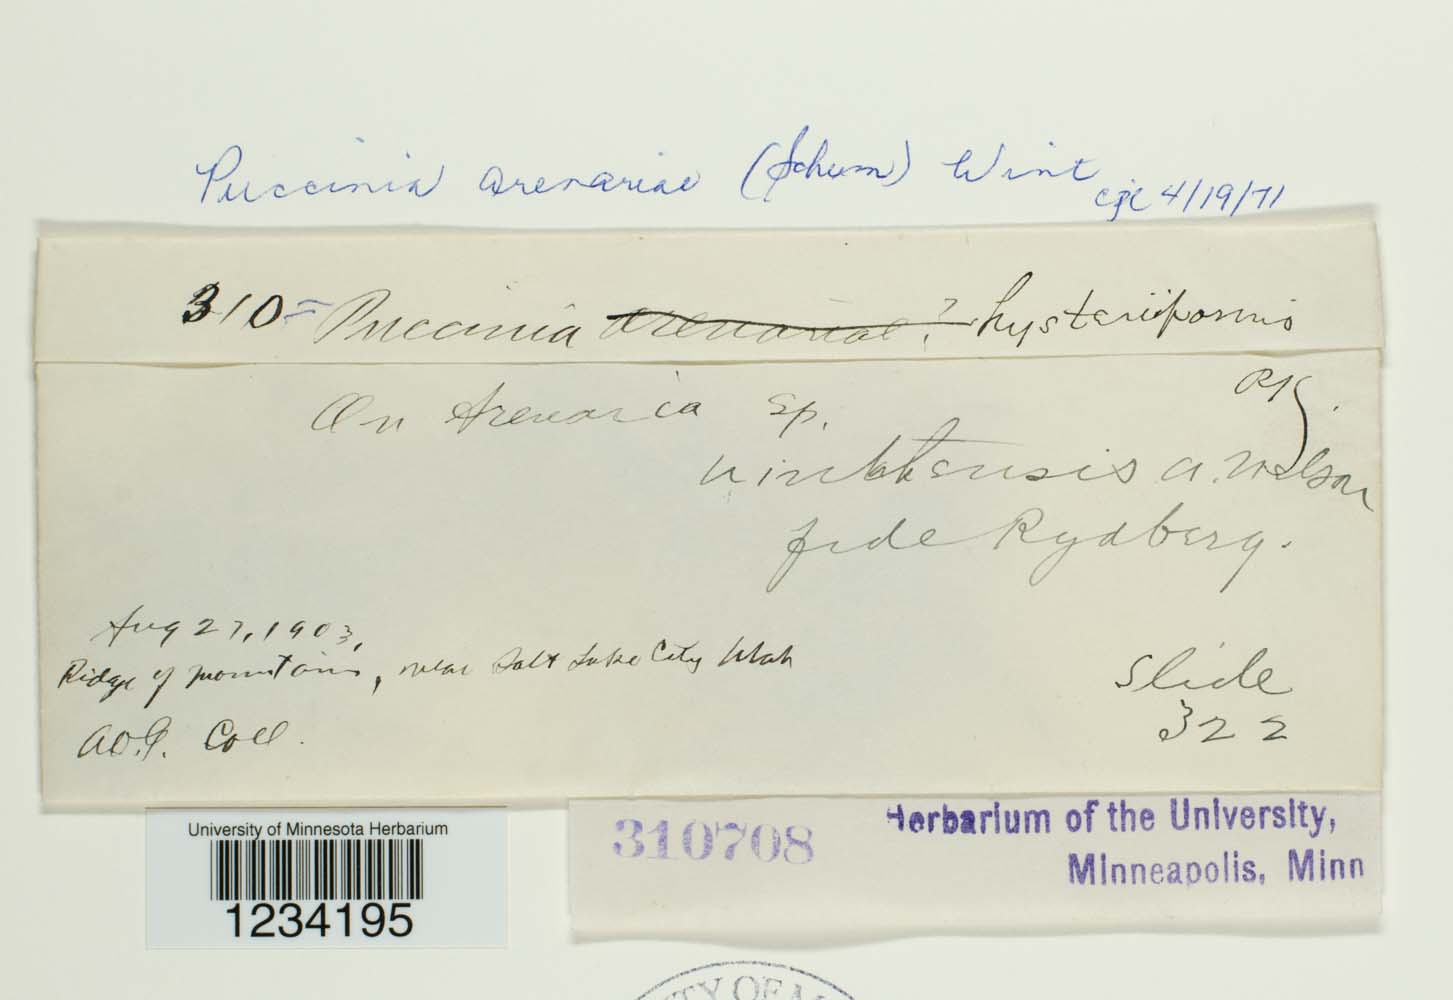 Puccinia arenariae (Schum) Wint
cjc 4/19/71
310 Puccinia arenariae? hysteriiformis
PK.
On Arenaria sp.
uintahensis A. Nelson
fide Rydberg.
Aug 27, 1903,
Ridge of mountains, near Salt Lake City Utah
A.O.G. Coll.
Slide
322
University of Minnesota Herbarium
1234195
310708
Herbarium of the University,
Minneapolis, Minn